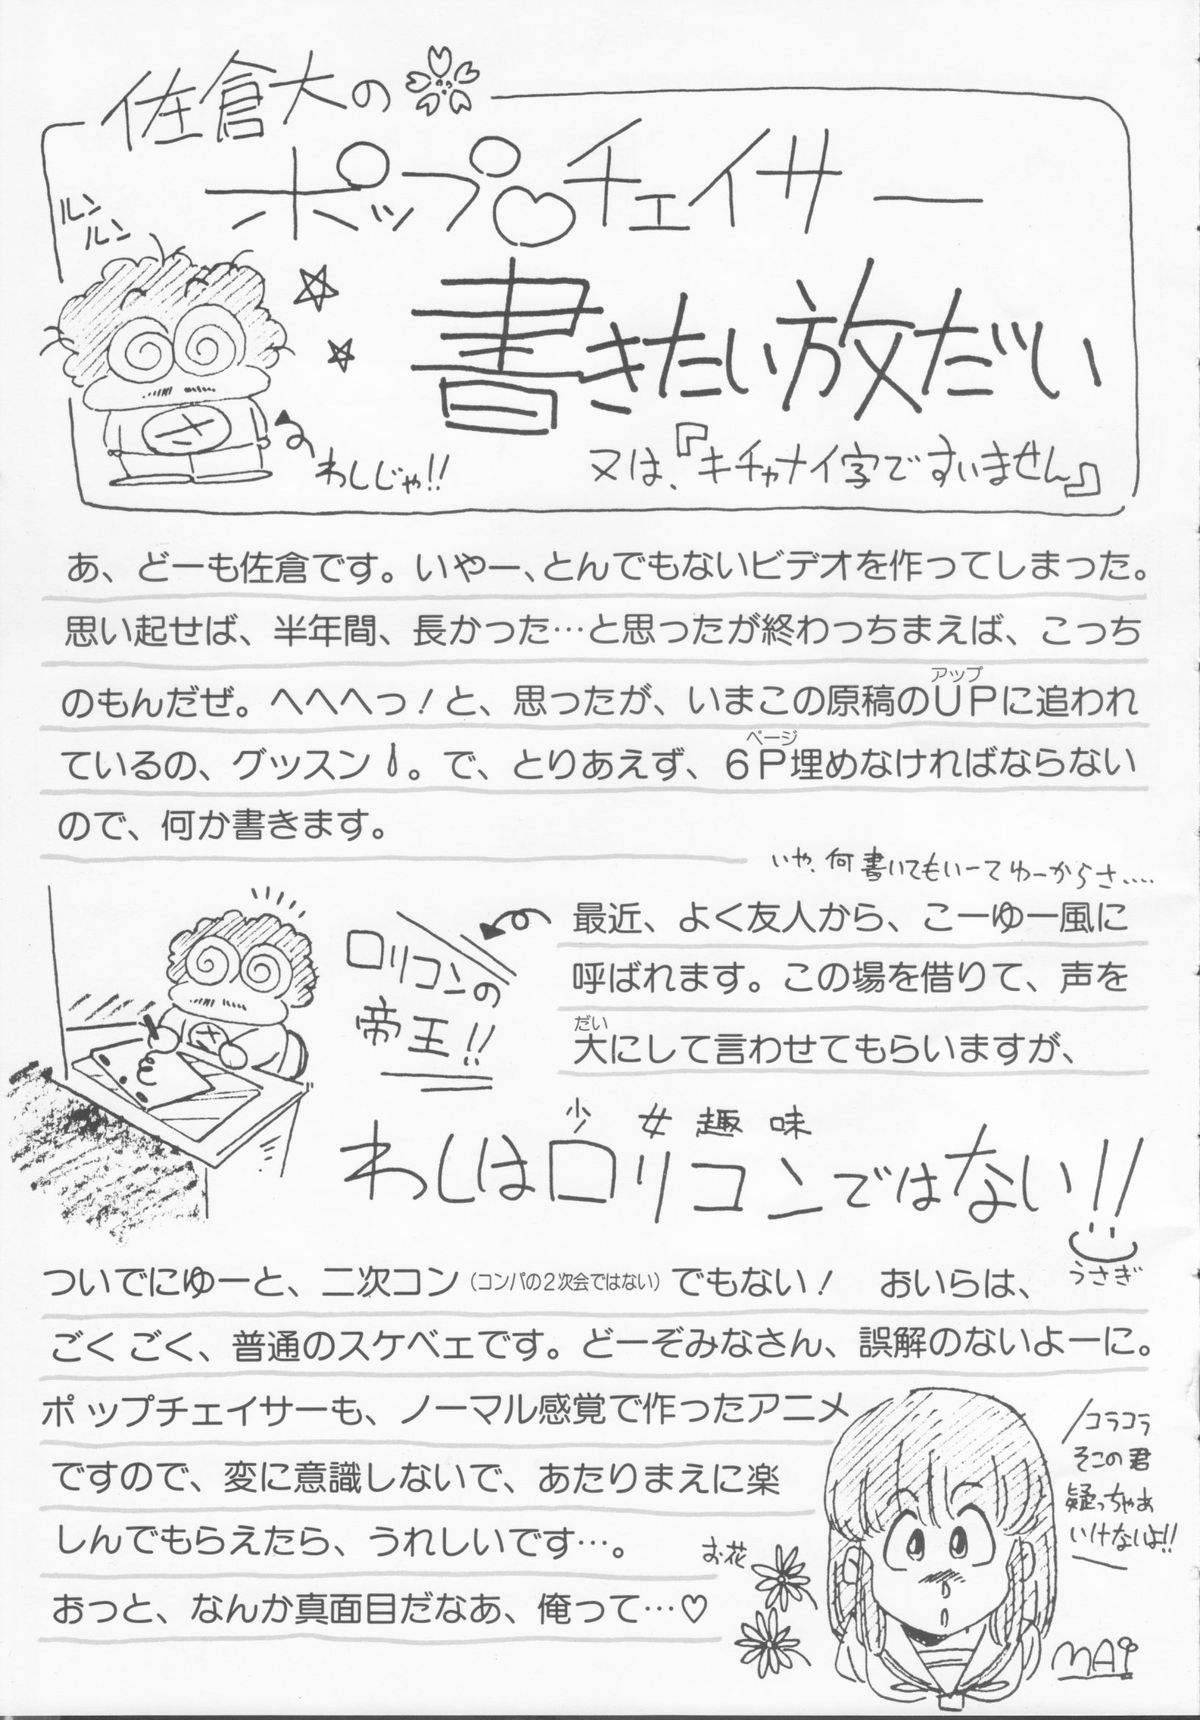 佐倉大の
ポップ♡チェイサー
ルン
ルン
書きたい放だい
わしじゃ!!
又は、『キチャナイ字ですいません』
あ、どーも佐倉です。いやー、とんでもないビデオを作ってしまった。
思い起せば、半年間、長かった…と思ったが終わっちまえば、こっち
のもんだぜ。へへへっ！と、思ったが、いまこの原稿のUP(アップ)に追われ
ているの、グッスン。で、とりあえず、6P(ページ)埋めなければならない
ので、何か書きます。
いや、何書いてもいーてゆーからさ‥‥
ロリコンの
帝王!!
最近、よく友人から、こーゆー風に
呼ばれます。この場を借りて、声を
大(だい)にして言わせてもらいますが、
少女趣味
わしはロリコンではない!!
うさぎ
ついでにゆーと、二次コン（コンパの2次会ではない）でもない！　おいらは、
ごくごく、普通のスケベェです。どーぞみなさん、誤解のないよーに。
ポップチェイサーも、ノーマル感覚で作ったアニメ
ですので、変に意識しないで、あたりまえに楽
しんでもらえたら、うれしいです…。
おっと、なんか真面目だなあ、俺って…♡
お花
コラコラ
そこの君
疑っちゃあ
いけないよ!!
MAI